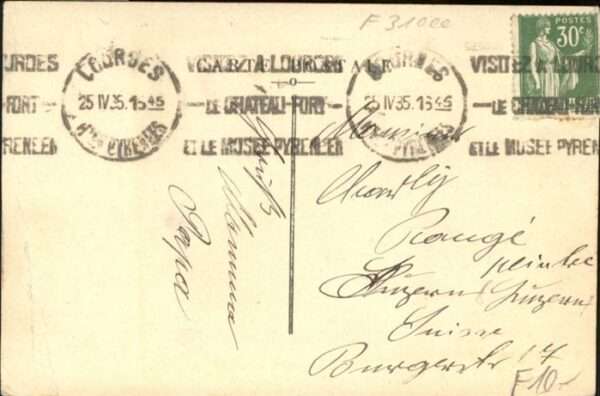 F 31000
POSTES
30c
LOURDES
25 IV 35. 15 45
Htes PYRENEES
VISITEZ A LOURDES
LE CHATEAU-FORT
ET LE MUSEE PYRENEEN
LOURDES
25 IV 35. 15 45
PYRENEES
VISITEZ A LOURDES
LE CHATEAU-FORT
ET LE MUSEE PYRENEEN
OURDES
FORT
PYRENEEN
CARTE POSTALE
Mamma
Papa
Monsieur
Charly
Rangé
Luzern Luzern
Suisse
Burgerstr 17
F10.-